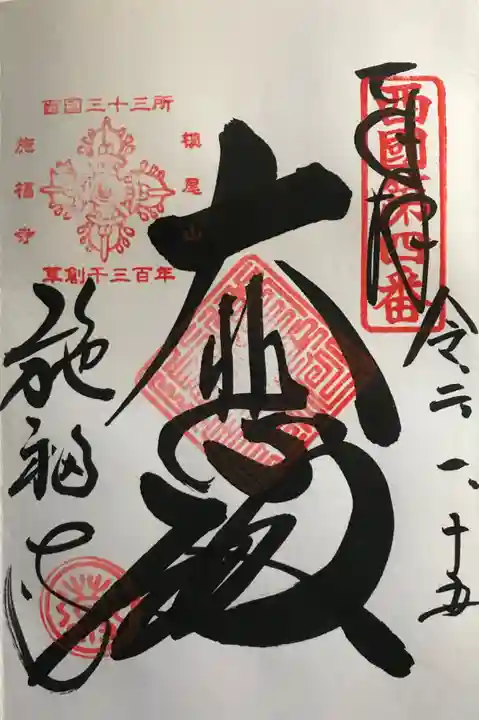 奉拝
西國第四番
令二、一、十五
大悲殿
西國三十三所
槇尾山
施福寺
草創千三百年
施福寺